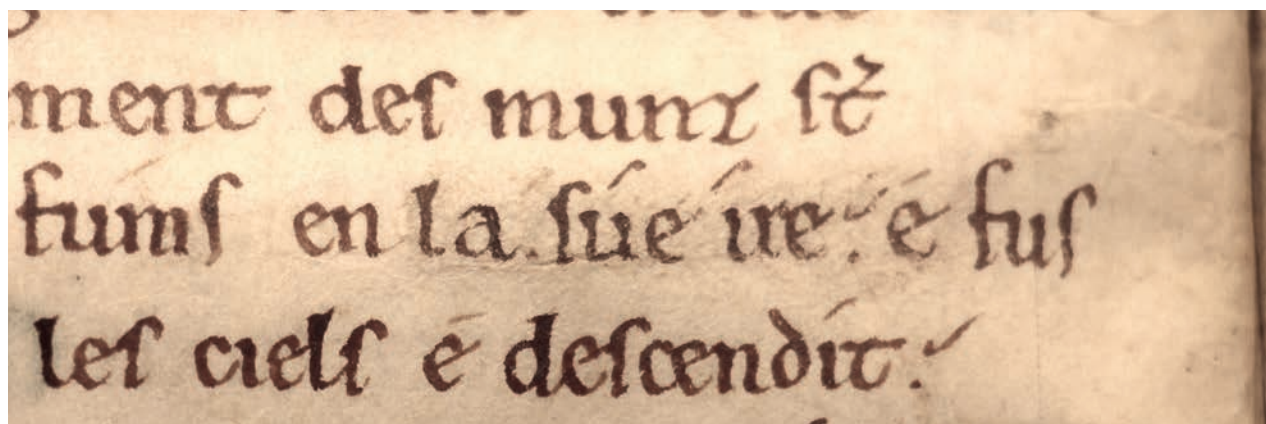 ment des munz st̉
fums en la sue ire. e fus
les ciels e descendit.